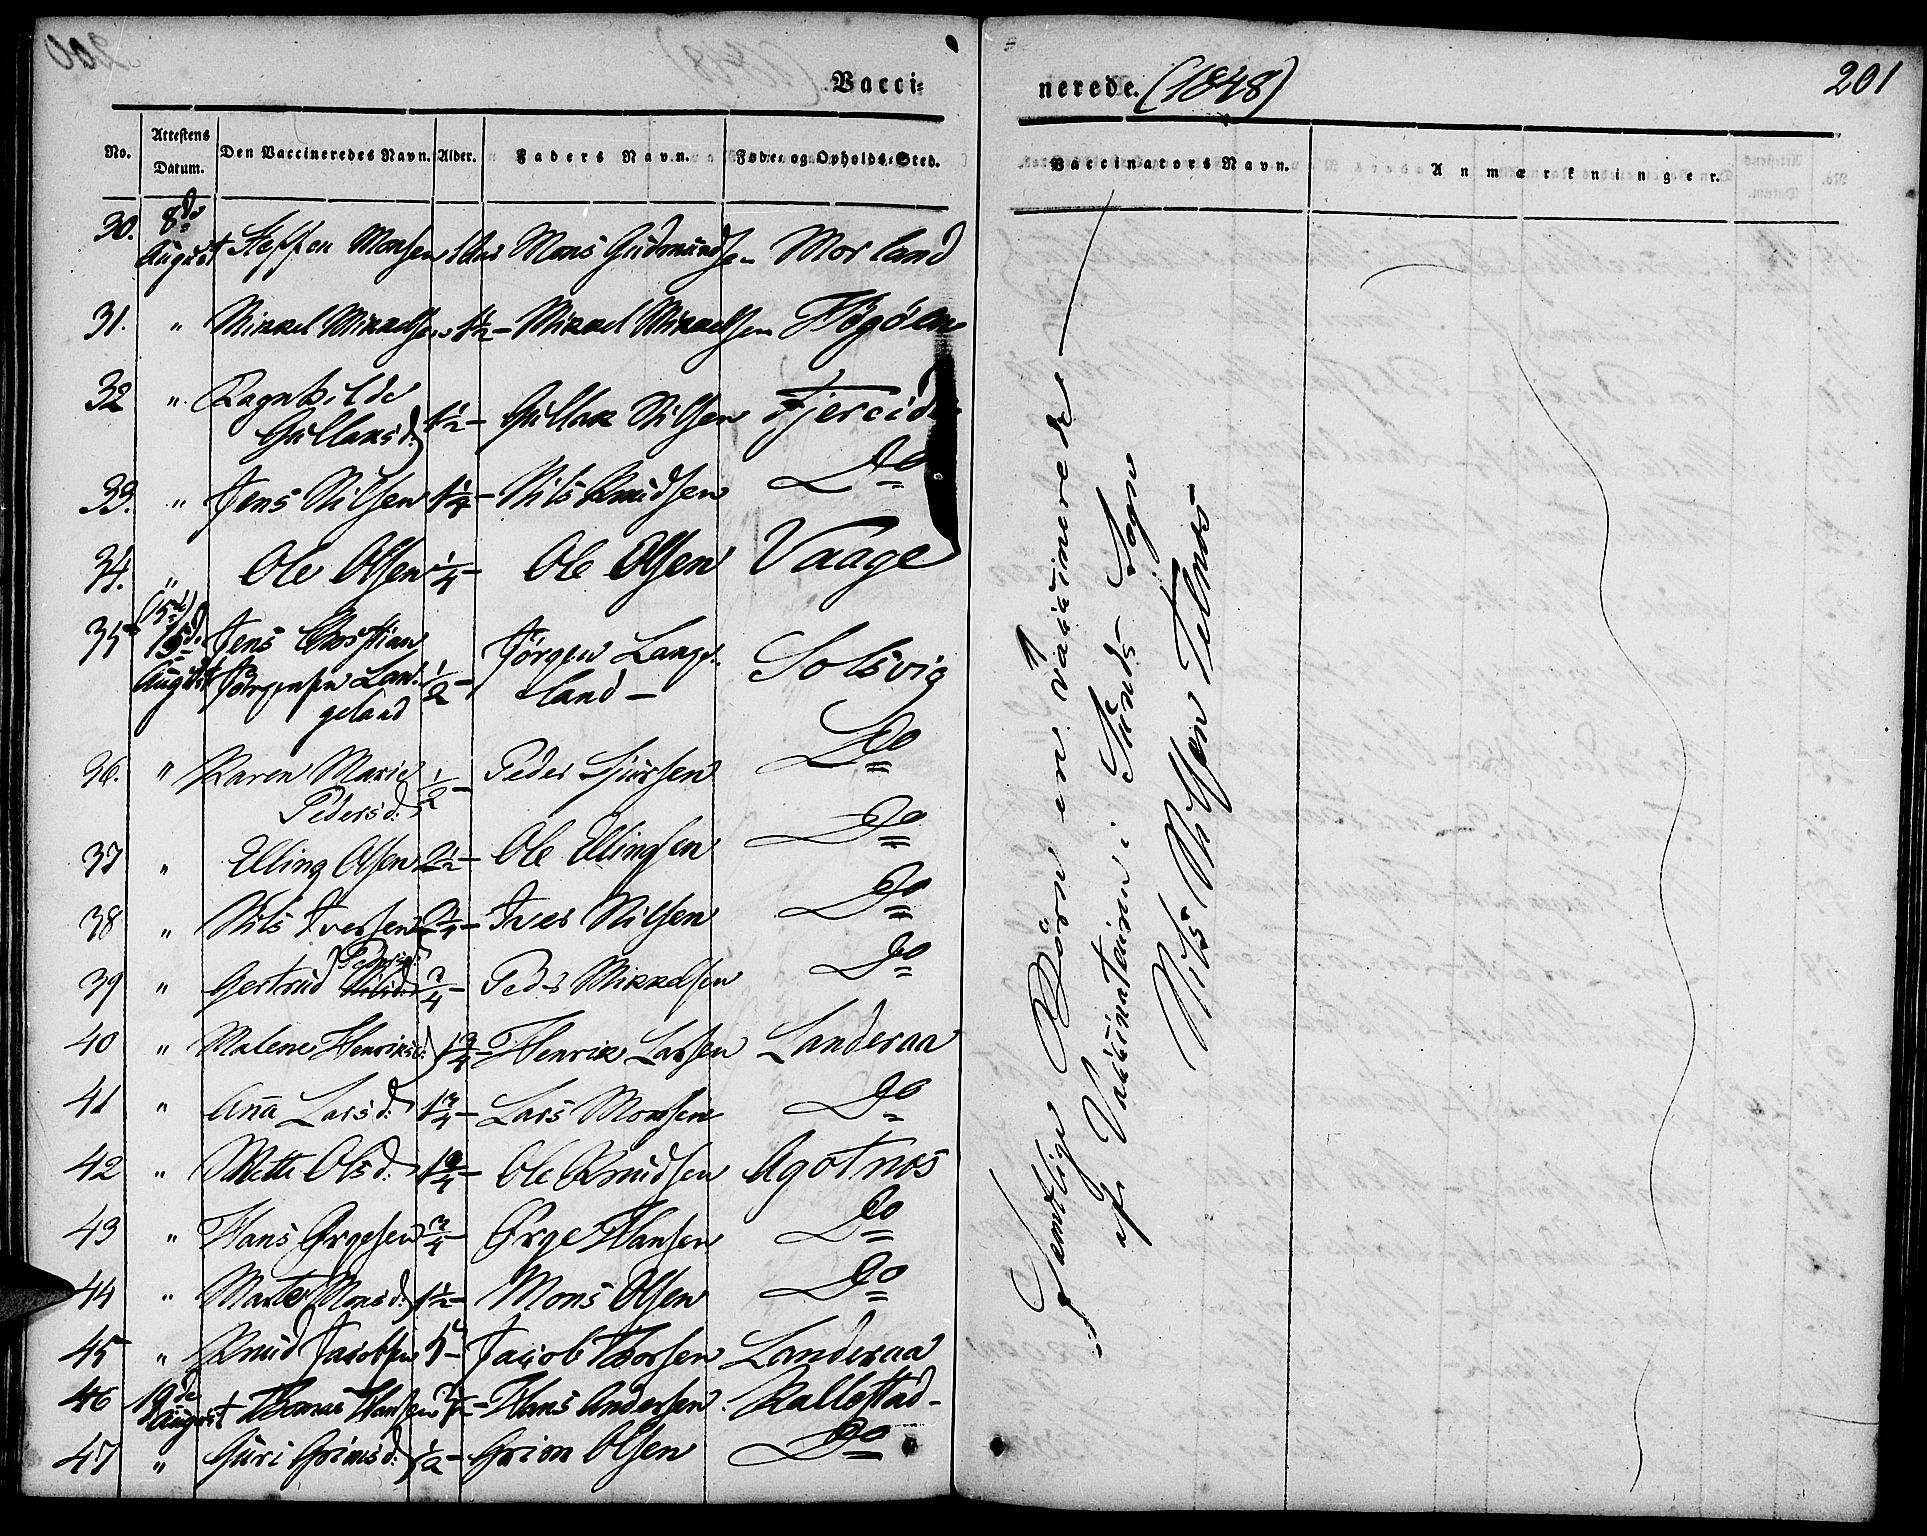 Vacci=
nerede. (1848)
201
No. Attestens Datum. Den Vaccineredes Navn. Alder. Faders Navn. Føde= og Opholds=Sted. Vaccinators Navn. Anmærkninger.
30. 8de August Steffen Monsen 1 Mons Gudmundsen Morland
31. " Mikkel Mikkelsen 1½ – Mikkel Mikkelsen Høgöen
32 " Ragnhilde
Gullaksd: 1½ – Gullak Nilsen Fjereide
33. " Jens Nilsen 1¼ – Nils Knudsen Do
34. " Ole Olsen ¼ – Ole Olsen Vaage
35 (15d) 15d. August Jens Christian
Jørgensen Lan=
geland ½ – Jörgen Lange=
land – Solsvig
36. " Karen Marie
Pedersd: ½ – Peder Sjursen Do
37 " Elling Olsen 2½ – Ole Ellingsen Do
38 " Nils Iversen 2¼ – Iver Nilsen Do
39 " Gertrud Pedersd: ¾ – Peder Mikkelsen Do
40 " Malene Henriksd: 1¾ – Henrik Larsen Landeraa
41 " Anna Larsd: 1¾ – Lars Monsen Do
42 " Mette Olsd: 1¾ – Ole Knudsen Agotnes
43 " Hans Ørgesen ¾ – Ørge Hansen Do
44 " Marte Monsd: 1½ – Mons Olsen Do
45 " Knud Jacobsen – Jacob Thorsen Landeraa
46 19de August Thomas Hansen – Hans Andersen Kallestad –
47 " Guri Grimsd: ½ – Grim Olsen Do
Samtlige Börn ere vaccinerede
af Vaccinateuren i Sunds Sogn
Nils Nilsen Telnes